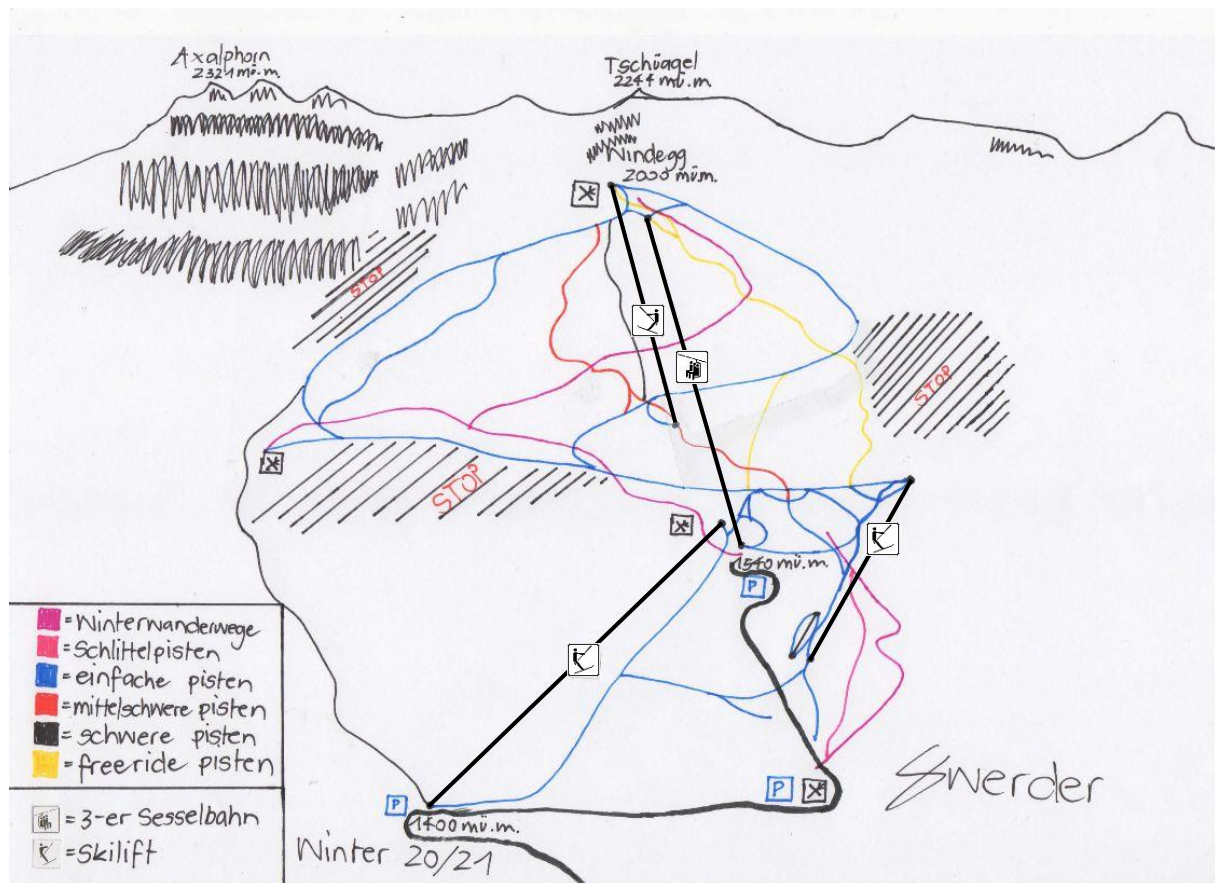 Axalphorn
2321 mü.m.
Tschüagel
2244 mü.m.
Windegg
2000 mü.m.
STOP
STOP
STOP
1540 mü.m.
P
= Winterwanderwege
= Schlittelpisten
= einfache pisten
= mittelschwere pisten
= schwere pisten
= freeride pisten
= 3-er Sesselbahn
= Skilift
P
P
1400 mü.m.
Winter 20/21
Swerder